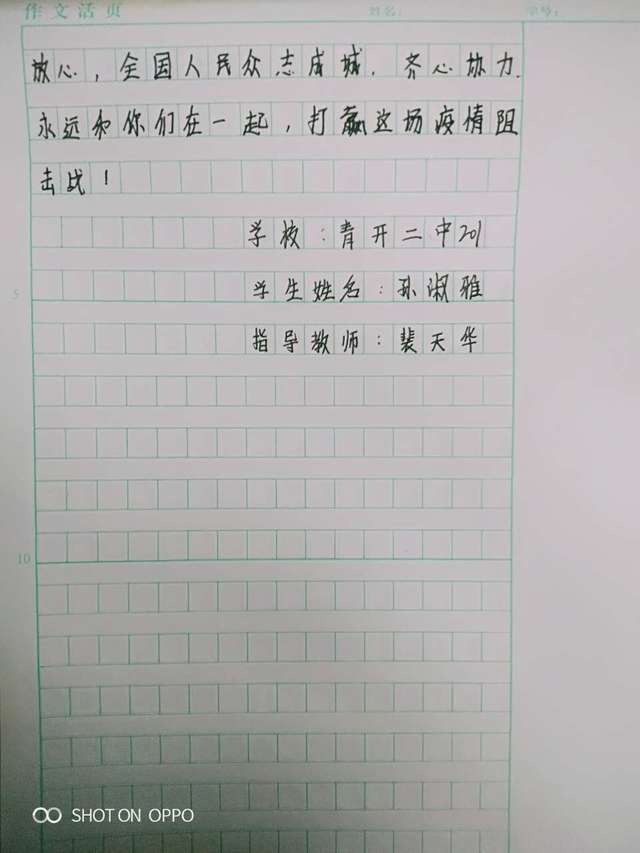 作文活页 姓名: 学号:
放心，全国人民众志成城，齐心协力，
永远和你们在一起，打赢这场疫情阻
击战！
学校：青开二中201
5
学生姓名：孙淑雅
指导教师：裴天华
10
SHOT ON OPPO